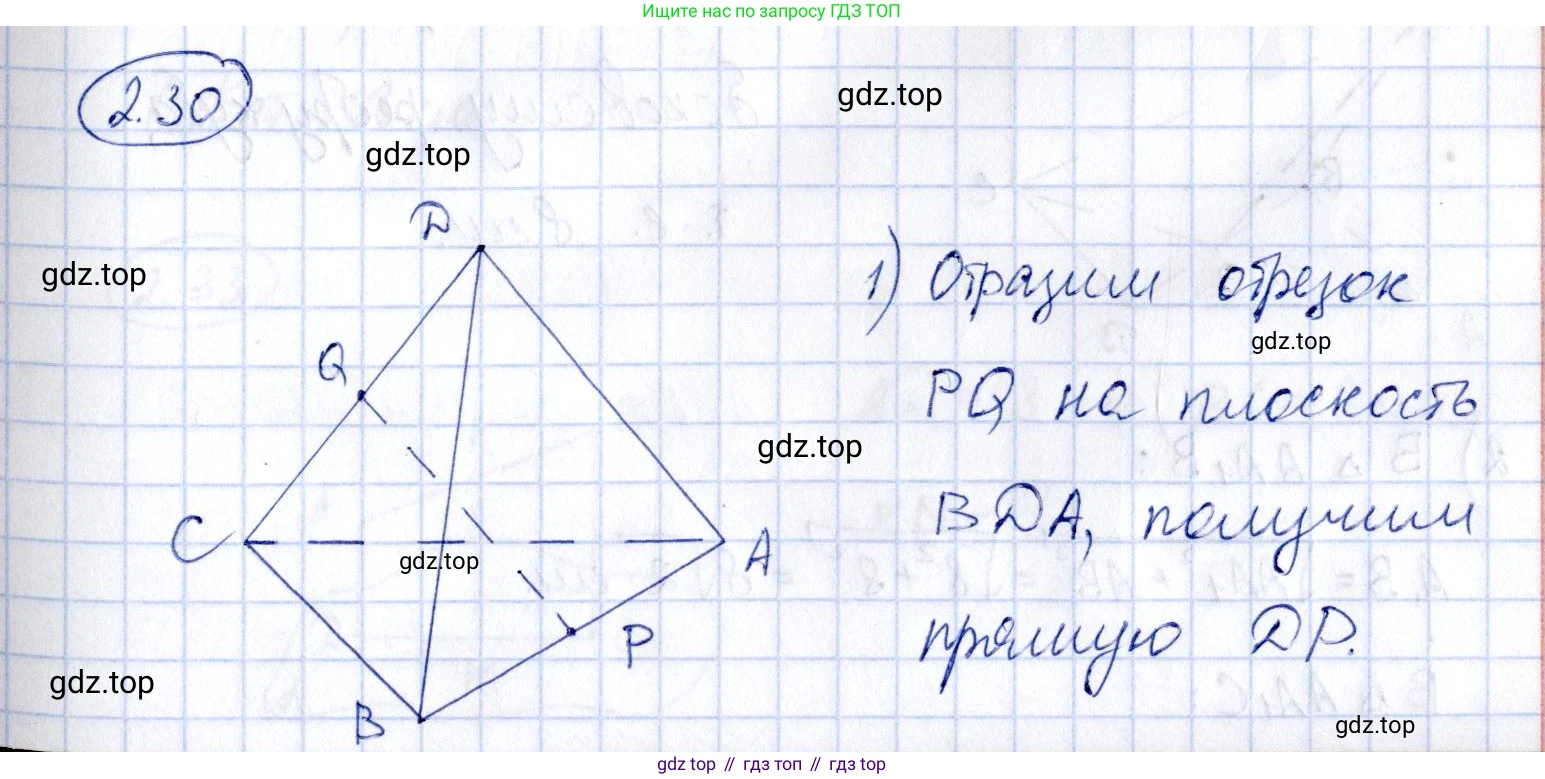 Ищите нас по запросу ГДЗ ТОП
2.30
gdz.top
gdz.top
D
gdz.top
1) Отразим отрезок
gdz.top
Q
PQ на плоскость
gdz.top
BDA, получим
C
gdz.top
A
прямую DP.
P
gdz.top
B
gdz.top
gdz top // гдз топ // гдз top